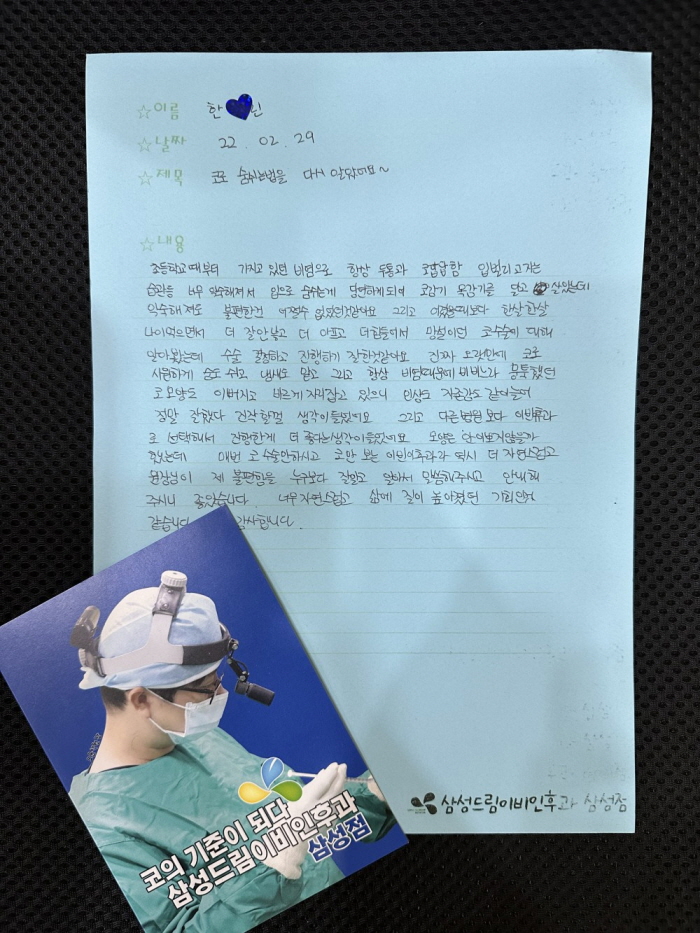 ☆이름 한 닌
☆날짜 22. 02. 29
☆제목 코로 숨쉬는법을 다시 알았어요~
☆내용
초등학교때부터 가지고 있던 비염으로 항상 두통과 코답답함 입벌리고자는
습관들 너무 익숙해져서 입으로 숨쉬는게 당연하게되어 코감기 목감기를 달고 살았는데
익숙해져도 불편한건 어쩔수 없었던것같아요 그리고 어렸을때보다 한살한살
나이먹으면서 더 잘안낫고 더 아프고 더힘들어서 망설이던 코수술에 대해
알아봤는데 수술 결정하고 진행하기 잘한것같아요 진짜 오랜만에 코로
시원하게 숨도 쉬고 냄새도 맡고 그리고 항상 비염때문에 뭉툭했던
코모양도 이뻐지고 바르게 자리잡고 있으니 인상도 자존감도 같이늘어
정말 잘했다 진작할껄 생각이들었어요 그리고 다른병원보다 이비인후과
로 선택해서 진행한게 더 좋다는생각이들었어요 모양은 안이쁘지않을까
했는데 매번 코수술만하시고 코만 보는 이비인후과라 역시 더 자연스럽고
원장님이 제 불편함을 누구보다 잘알고 알아서 말씀해주시고 안내해
주시니 좋았습니다 너무자연스럽고 삶에 질이 높아졌던 기회인거
같습니다 감사합니다.
코의 기준이 되다
삼성드림이비인후과
삼성점
삼성드림이비인후과 삼성점